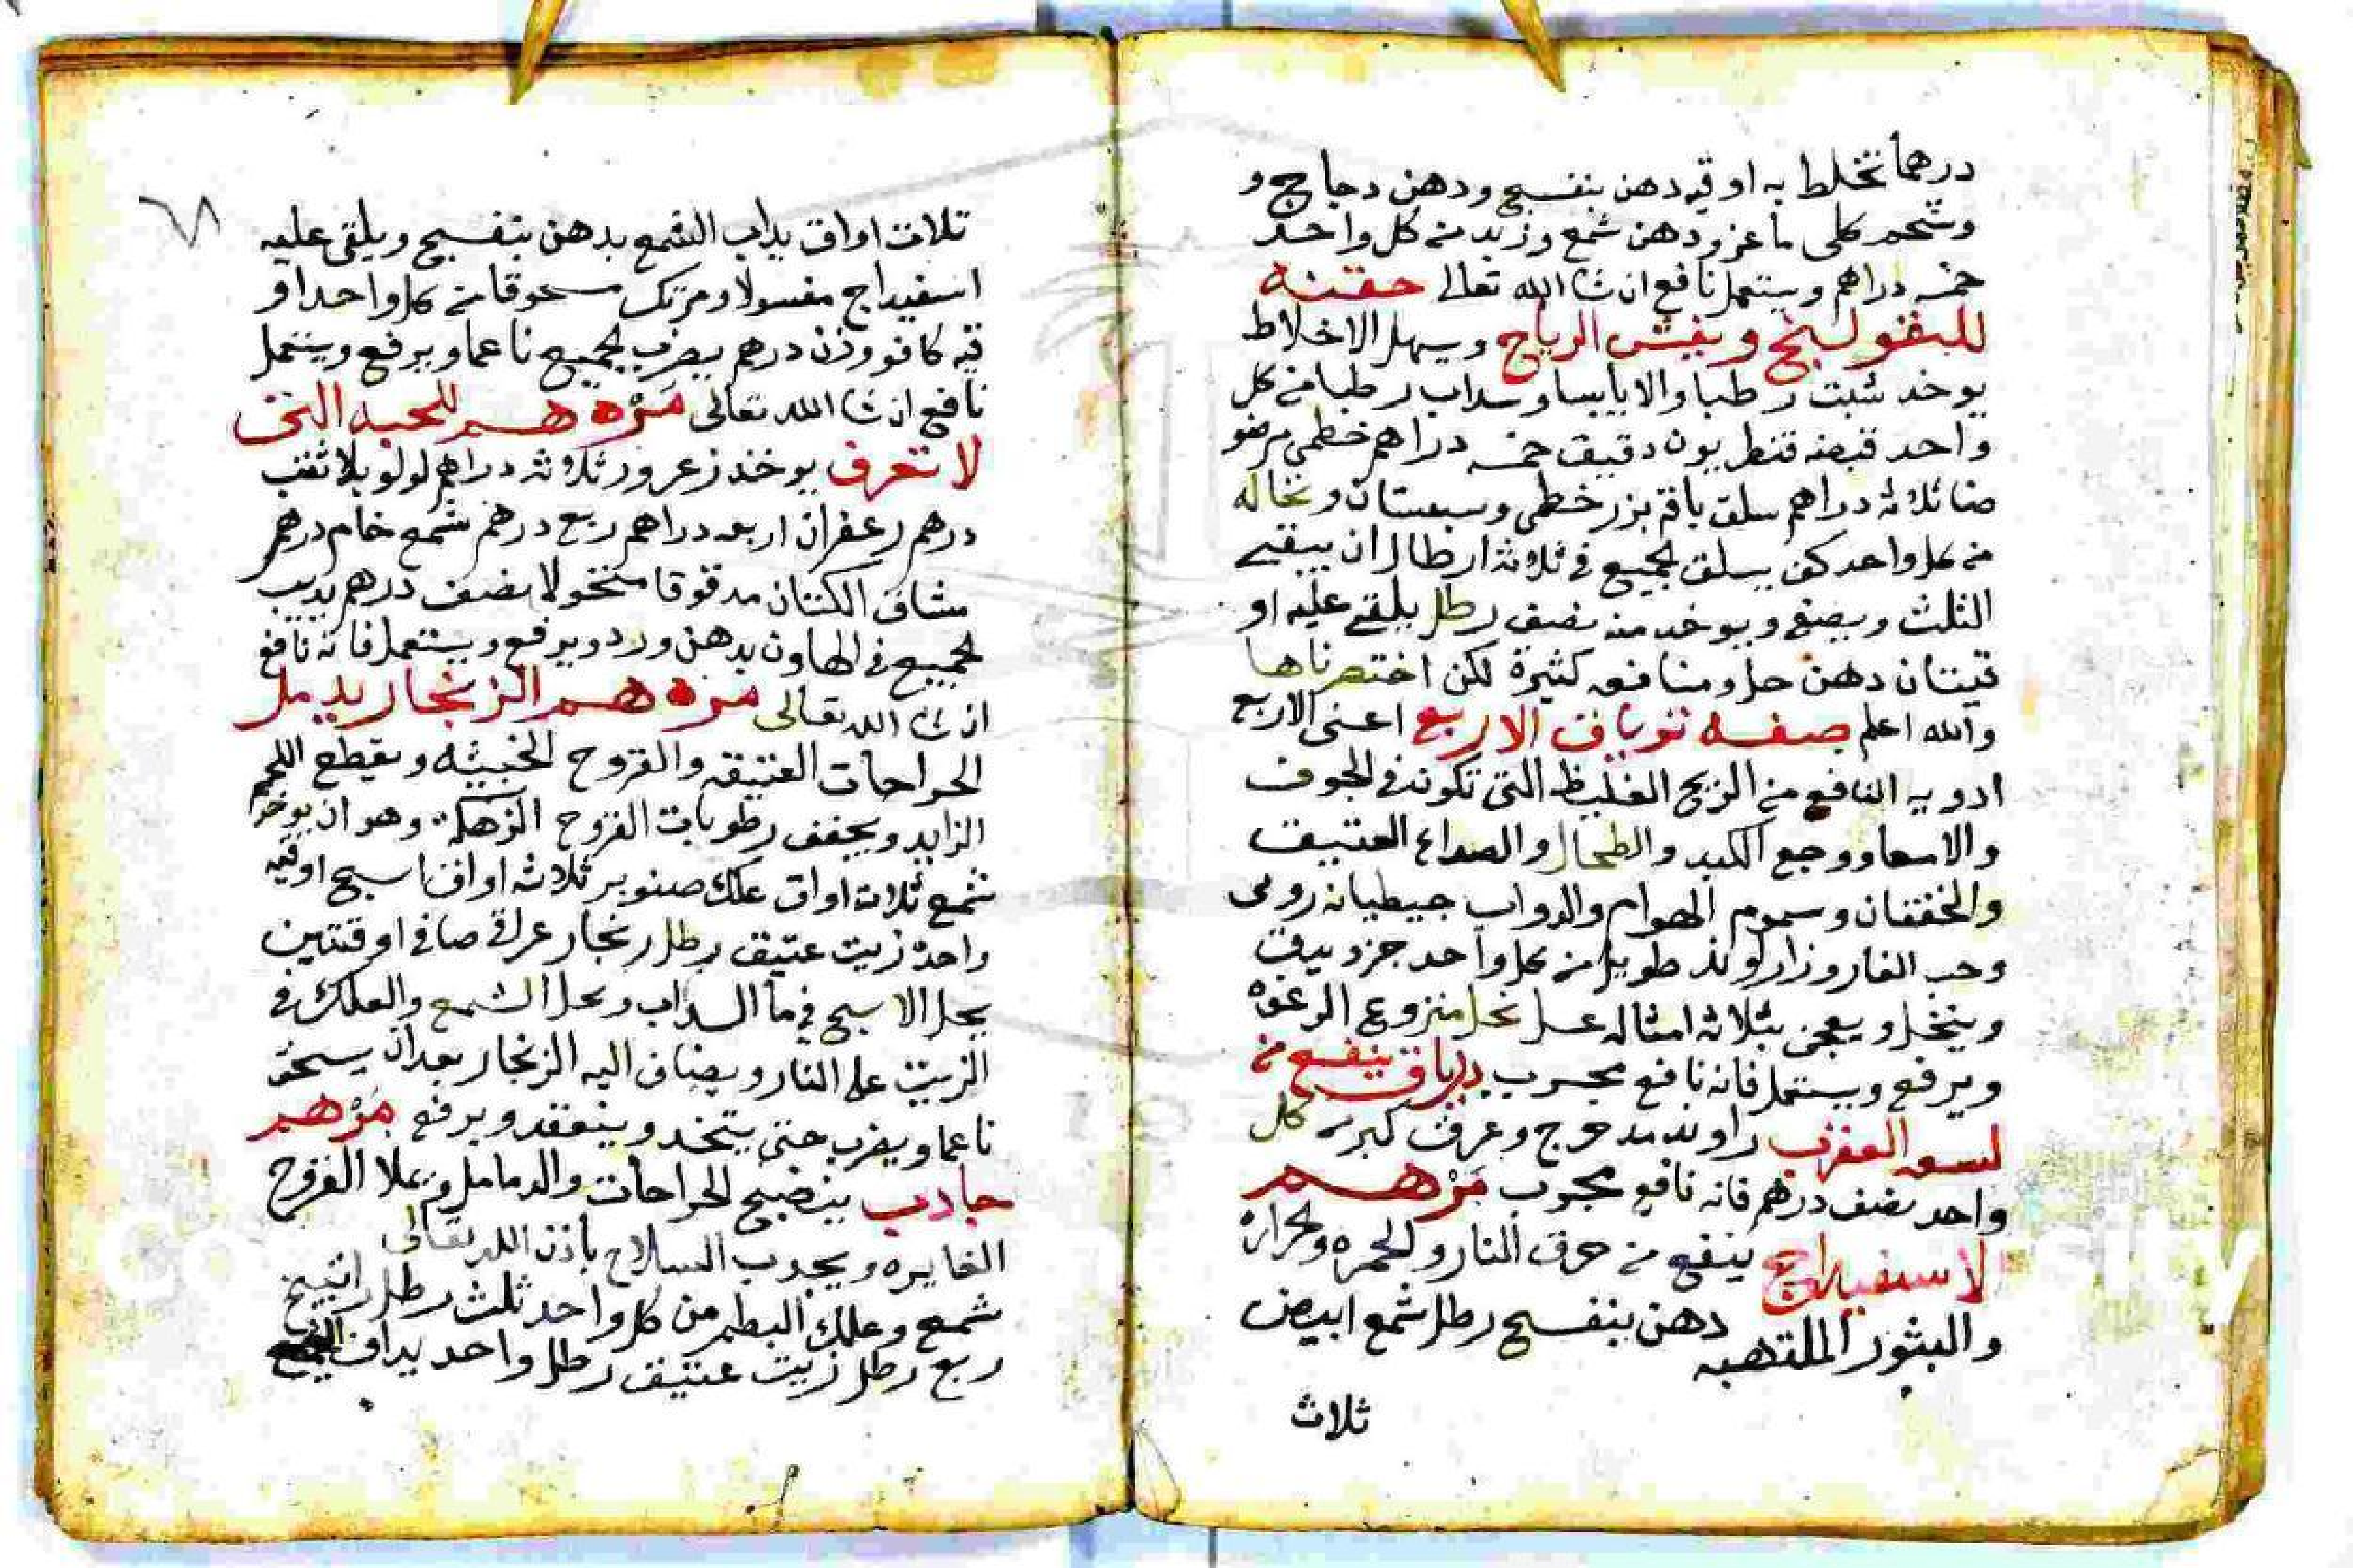 درهما تخلط به اوقيه دهن بنفسج ودهن دجاج و
وشحم كلى ماعز ودهن شمع وزبد من كل واحد
خمسه دراهم ويستعمل نافع ان شا الله تعالى حقنه
للبقولنج ويفش الرياح ويسهل الاخلاط
يوخد شبت رطبا والا يابسا وسداب رطبا من كل
واحد قبضه قنطريون دقيق خمسه دراهم خطمى مرضو
ضا ثلاثه دراهم سلق باقه بزر خطمى وسبستان ونخاله
من كل واحد كف يسلق الجميع فى ثلاثه ارطال ان يبقى
الثلث ويصفى ويوخد منه نصف رطل يلقى عليه او
قيتان دهن حل ومنافعه كثيرة لكن اختصرناها
والله اعلم صفه ترياق الاربع اعنى الاربع
ادويه النافع من الريح الغليظه التى تكون فى الجوف
والامعا ووجع الكبد والطحال والصداع العتيق
والخفقان وسموم الهوام والدواب جيطيانه رومى
وحب الغار وزراوند طويل من كل واحد جزو يدق
وينخل ويعجن بثلاثه امثاله عسل نحل منزوع الرغوه
ويرفع ويستعمل فانه نافع مجرب درياق ينفع من
لسعه العقرب راوند مدحرج وعرق كبر من كل
واحد نصف درهم فانه نافع مجرب مرهم
لاسفيداج ينفع من حرق النار والحمره والحراره
والبثور الملتهبه دهن بنفسج رطل شمع ابيض
ثلاث
٦٨
تلات اواق يداب الشمع بدهن بنفسج ويلقى عليه
اسفيداج مغسولا ومرتك مسحوقا من كل واحد او
قيه كافور وزن درهم يضرب الجميع ناعما ويرفع ويستعمل
نافع ان شا الله تعالى مرهم للحبه التى
لا تعرف يوخد زعرور ثلاثه دراهم لولو بلا ثقب
درهم زعفران اربعه دراهم ربع درهم شمع خام درهم
مشاق الكتان مدقوقا منخولا نصف درهم يديب
الجميع فى الهاون بدهن ورد ويرفع ويستعمل فانه نافع
ان شا الله تعالى مرهم الزنجار يدمل
الجراحات العتيقه والقروح الخبيثه ويقطع اللحم
الزايد ويجفف رطوبات القروح الزهكه وهو ان يوخد
شمع ثلاث اواق علك صنوبر ثلاثه اواق اسبج اوقيه
واحده زيت عتيق رطل زنجار عراقى صافى اوقتين
يحل الاسبج فى ما السداب ويحل الشمع والعلك فى
الزيت على النار ويضاف اليه الزنجار بعد ان يسحق
ناعما ويضرب حتى يتخد وينعقد ويرفع مرهم
جادب ينضج الجراحات والدمامل ويملا القروح
الغايره ويجدب السلاح باذن الله تعالى
شمع وعلك البطم من كل واحد ثلث رطل راتينج
ربع رطل زيت عتيق رطل واحد يداف الجميع